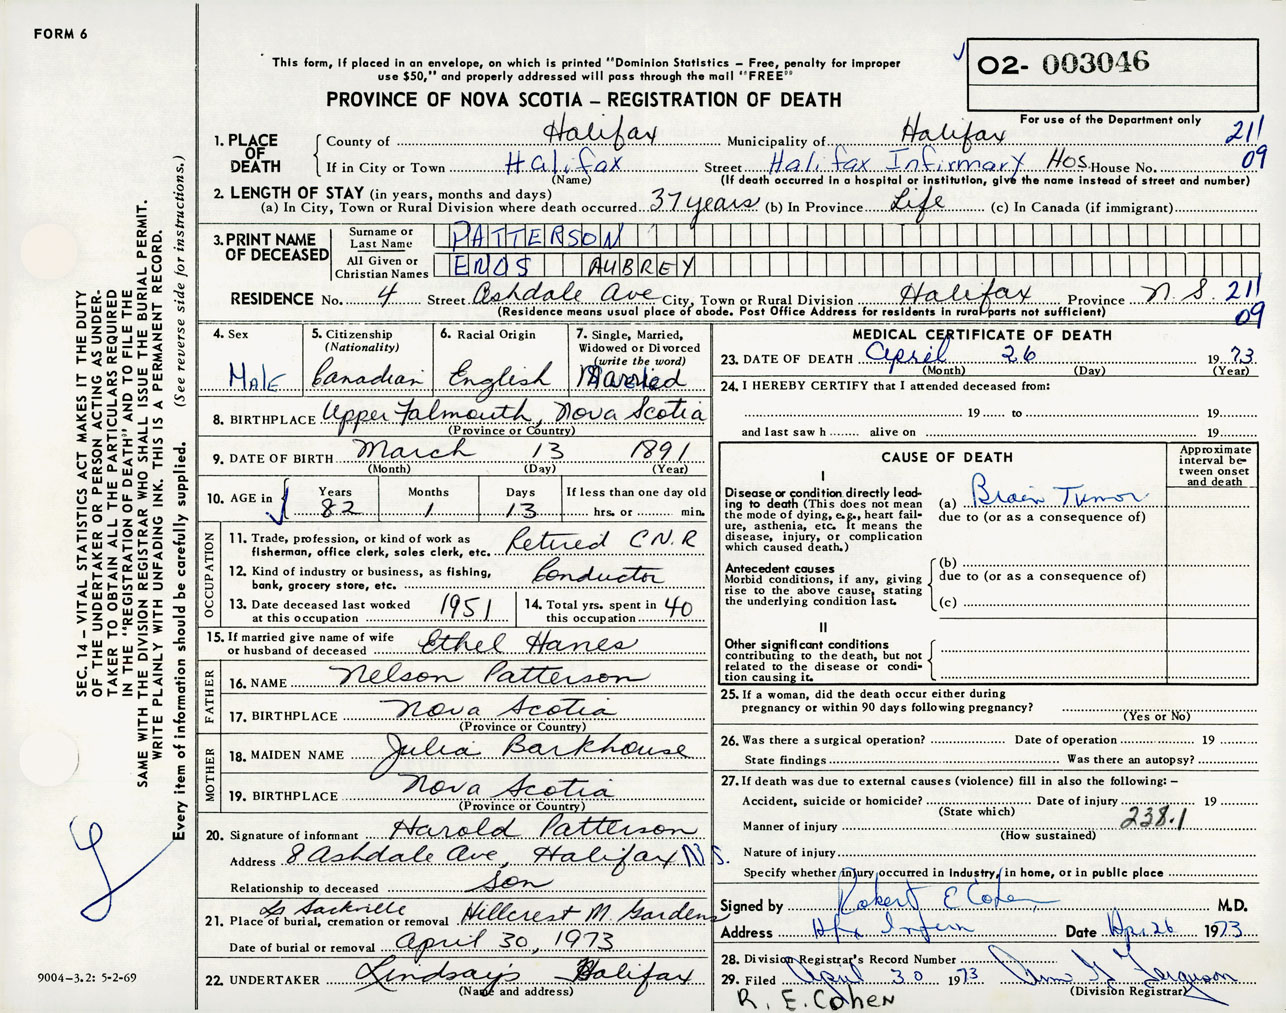 FORM 6
This form, if placed in an envelope, on which is printed "Dominion Statistics – Free, penalty for improper
use $50," and properly addressed will pass through the mail "FREE"
PROVINCE OF NOVA SCOTIA – REGISTRATION OF DEATH
O2- 003046
For use of the Department only
211
09
1. PLACE OF DEATH
County of Halifax Municipality of Halifax
If in City or Town Halifax Street Halifax Infirmary Hos. House No.
(Name) (If death occurred in a hospital or institution, give the name instead of street and number)
2. LENGTH OF STAY (in years, months and days)
(a) In City, Town or Rural Division where death occurred 37 years (b) In Province Life (c) In Canada (if immigrant)
3. PRINT NAME OF DECEASED
Surname or Last Name PATTERSON
All Given or Christian Names ENOS AUBREY
RESIDENCE No. 4 Street Ashdale Ave City, Town or Rural Division Halifax Province N.S. 211
(Residence means usual place of abode. Post Office Address for residents in rural parts not sufficient) 09
4. Sex
Male
5. Citizenship
(Nationality)
Canadian
6. Racial Origin
English
7. Single, Married,
Widowed or Divorced
(write the word)
Married
8. BIRTHPLACE Upper Falmouth, Nova Scotia
(Province or Country)
9. DATE OF BIRTH March 13 1891
(Month) (Day) (Year)
10. AGE in
Years Months Days If less than one day old
82 1 13 hrs. or min.
OCCUPATION
11. Trade, profession, or kind of work as
fisherman, office clerk, sales clerk, etc. Retired C.N.R
12. Kind of industry or business, as fishing,
bank, grocery store, etc. Conductor
13. Date deceased last worked
at this occupation 1951
14. Total yrs. spent in
this occupation 40
15. If married give name of wife
or husband of deceased Ethel Hanes
FATHER
16. NAME Nelson Patterson
17. BIRTHPLACE Nova Scotia
(Province or Country)
MOTHER
18. MAIDEN NAME Julia Barkhouse
19. BIRTHPLACE Nova Scotia
(Province or Country)
20. Signature of informant Harold Patterson
Address 8 Ashdale Ave, Halifax N.S.
Relationship to deceased Son
21. Place of burial, cremation or removal Lr Sackville Hillcrest M. Gardens
Date of burial or removal April 30, 1973
22. UNDERTAKER Lindsay's Halifax
(Name and address)
MEDICAL CERTIFICATE OF DEATH
23. DATE OF DEATH April 26 1973
(Month) (Day) (Year)
24. I HEREBY CERTIFY that I attended deceased from:
19 to 19
and last saw h alive on 19
CAUSE OF DEATH
Approximate
interval be-
tween onset
and death
I
Disease or condition directly lead-
ing to death (This does not mean
the mode of dying, e.g., heart fail-
ure, asthenia, etc. It means the
disease, injury, or complication
which caused death.)
(a) Brain Tumor
due to (or as a consequence of)
Antecedent causes
Morbid conditions, if any, giving
rise to the above cause, stating
the underlying condition last.
(b)
due to (or as a consequence of)
(c)
II
Other significant conditions
contributing to the death, but not
related to the disease or condi-
tion causing it.
25. If a woman, did the death occur either during
pregnancy or within 90 days following pregnancy?
(Yes or No)
26. Was there a surgical operation? Date of operation 19
State findings Was there an autopsy?
27. If death was due to external causes (violence) fill in also the following: –
Accident, suicide or homicide? Date of injury 19
(State which)
Manner of injury 238.1
(How sustained)
Nature of injury
Specify whether injury occurred in industry, in home, or in public place
Signed by Robert E Cohen M.D.
Address Hfx Infirm Date Apr 26 1973
28. Division Registrar's Record Number
29. Filed April 30 1973 Ferguson
(Division Registrar)
R. E. Cohen
SEC. 14 – VITAL STATISTICS ACT MAKES IT THE DUTY
OF THE UNDERTAKER OR PERSON ACTING AS UNDER-
TAKER TO OBTAIN ALL THE PARTICULARS REQUIRED
IN THE "REGISTRATION OF DEATH" AND TO FILE THE
SAME WITH THE DIVISION REGISTRAR WHO SHALL ISSUE THE BURIAL PERMIT.
WRITE PLAINLY WITH UNFADING INK. THIS IS A PERMANENT RECORD.
Every item of information should be carefully supplied. (See reverse side for instructions.)
9004-3.2: 5-2-69